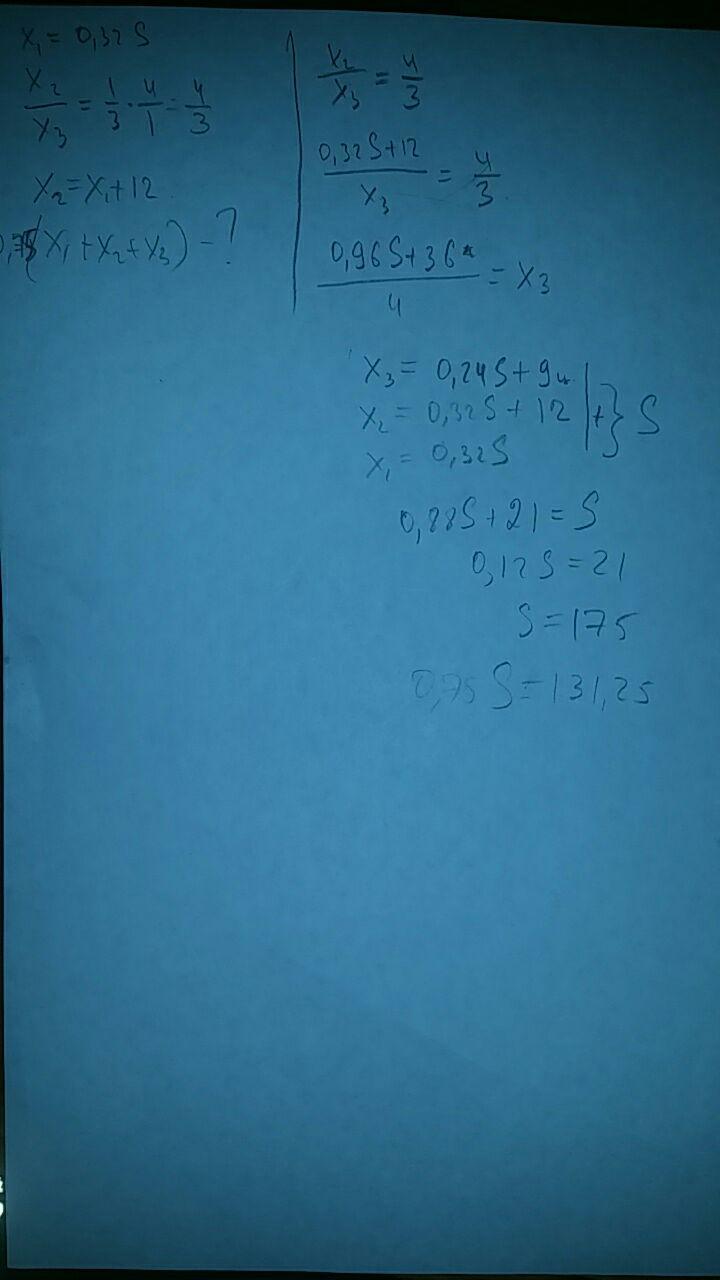 x₁ = 0,32 S
x₂/x₃ = 1/3 · 4/1 = 4/3
x₂ = x₁ + 12
(x₁ + x₂ + x₃) - ?
x₂/x₃ = 4/3
(0,32S + 12)/x₃ = 4/3
(0,96S + 36)/4 = x₃
x₃ = 0,24S + 9
x₂ = 0,32S + 12 | + } S
x₁ = 0,32S
0,88S + 21 = S
0,12S = 21
S = 175
0,75 S = 131,25